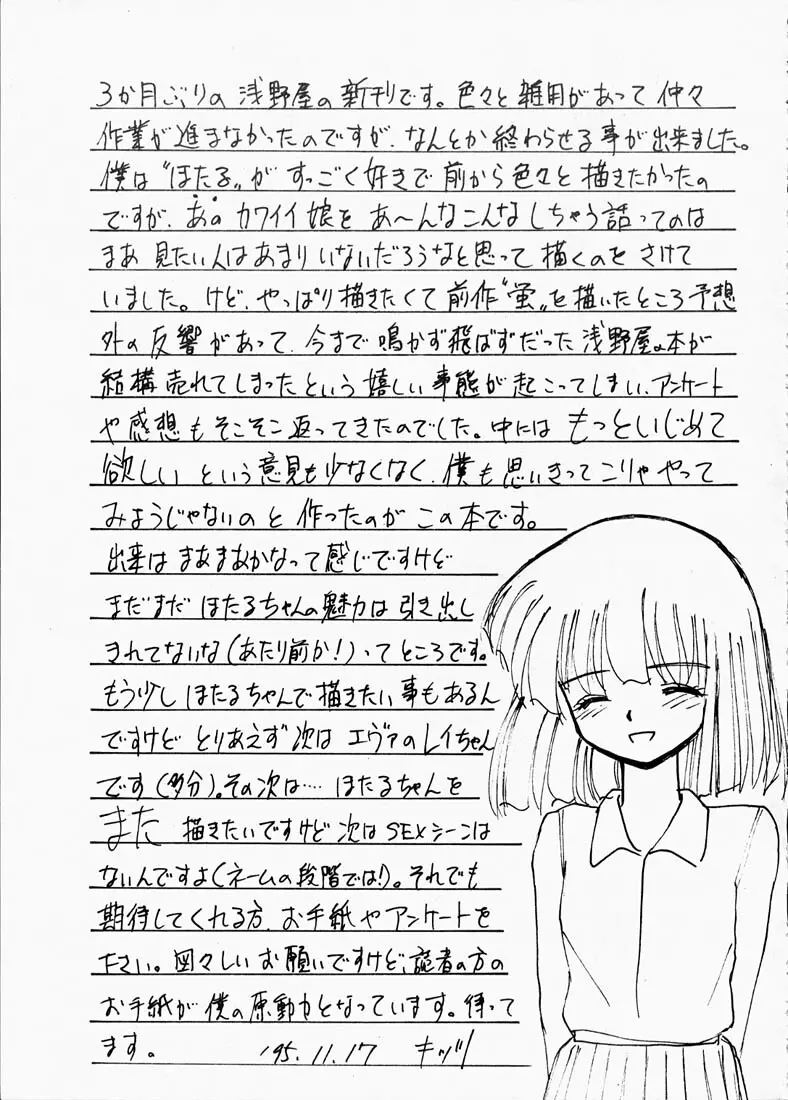 3か月ぶりの 浅野屋の新刊です。色々と雑用があって仲々
作業が進まなかったのですが、なんとか終わらせる事が出来ました。
僕は"ほたる"がすっごく好きで前から色々と描きたかったの
ですが、あのカワイイ娘をあ〜んなこんなしちゃう話ってのは
まあ見たい人はあまりいないだろうなと思って描くのをさけて
いました。けど、やっぱり描きたくて前作"蛍"を描いたところ予想
外の反響があって、今まで鳴かず飛ばずだった浅野屋の本が
結構売れてしまったという嬉しい事態が起こってしまい、アンケート
や感想もそこそこ返ってきたのでした。中にはもっといじめて
欲しいという意見も少なくなく、僕も思いきってこりゃやって
みようじゃないのと作ったのがこの本です。
出来はまあまあかなって感じですけど
まだまだほたるちゃんの魅力は引き出し
きれてないな(あたり前か!)ってところです。
もう少しほたるちゃんで描きたい事もあるん
ですけどとりあえず次はエヴァのレイちゃん
です(多分)。その次は…ほたるちゃんを
また描きたいですけど次はSEXシーンは
ないんですよ(ネームの段階では!)。それでも
期待してくれる方、お手紙やアンケートを
ださい。図々しいお願いですけど、読者の方の
お手紙が僕の原動力となっています。待って
ます。 '95.11.17 キッヅ